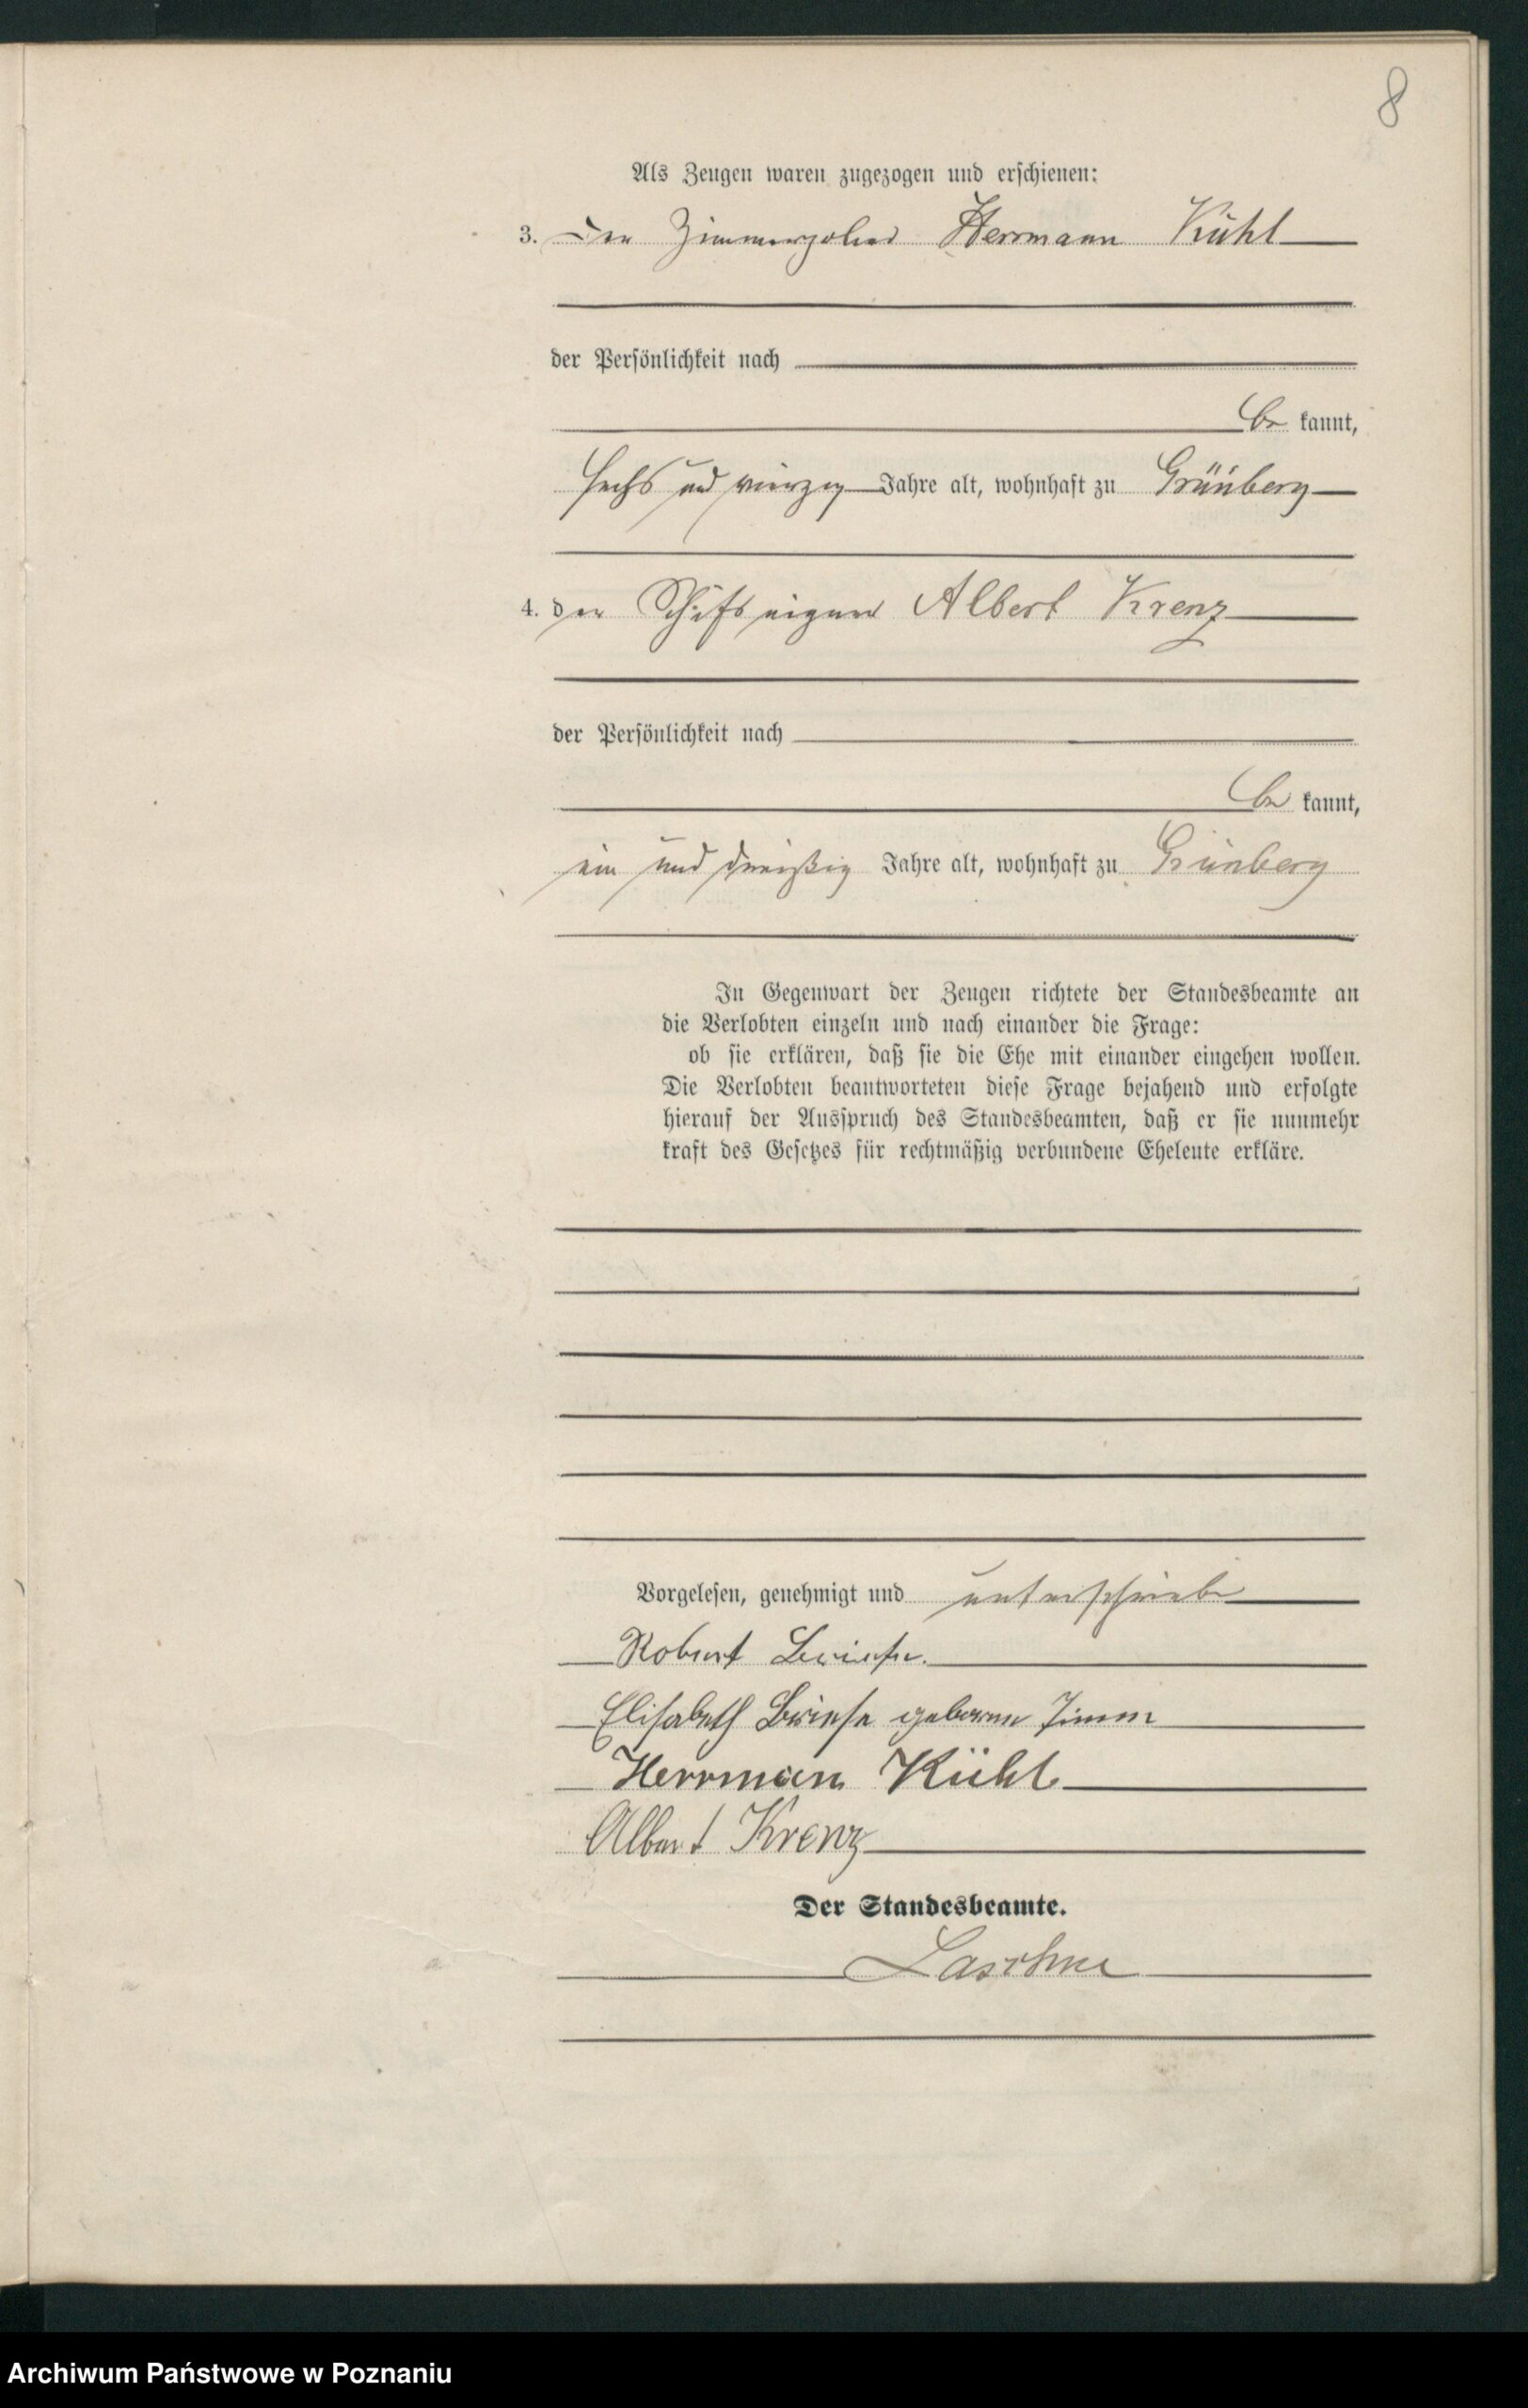 8
Als Zeugen waren zugezogen und erschienen:
3. Der Zimmerpolier Herrmann Kühl
der Persönlichkeit nach
be kannt,
sechs und vierzig Jahre alt, wohnhaft zu Grünberg
4. der Schiffseigner Albert Krenz
der Persönlichkeit nach
be kannt,
ein und dreißig Jahre alt, wohnhaft zu Grünberg
In Gegenwart der Zeugen richtete der Standesbeamte an
die Verlobten einzeln und nach einander die Frage:
ob sie erklären, daß sie die Ehe mit einander eingehen wollen.
Die Verlobten beantworteten diese Frage bejahend und erfolgte
hierauf der Ausspruch des Standesbeamten, daß er sie nunmehr
kraft des Gesetzes für rechtmäßig verbundene Eheleute erkläre.
Vorgelesen, genehmigt und unterschrieben
Robert Briese.
Elisabeth Briese geborene Timm
Herrmann Kühl
Albert Krenz
Der Standesbeamte.
Archiwum Państwowe w Poznaniu